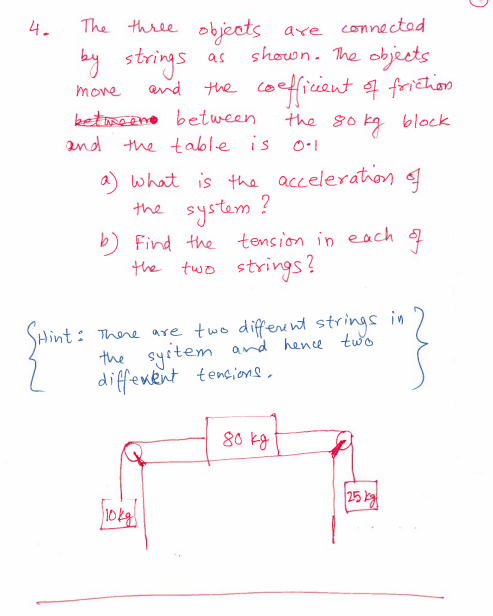 4. The three objects are connected
by strings as shown. The objects
move and the coefficient of friction
between between the 80 kg block
and the table is 0.1
a) What is the acceleration of
the system?
b) Find the tension in each of
the two strings?
Hint: There are two different strings in
the system and hence two
different tensions.
80 kg
10kg
25 kg